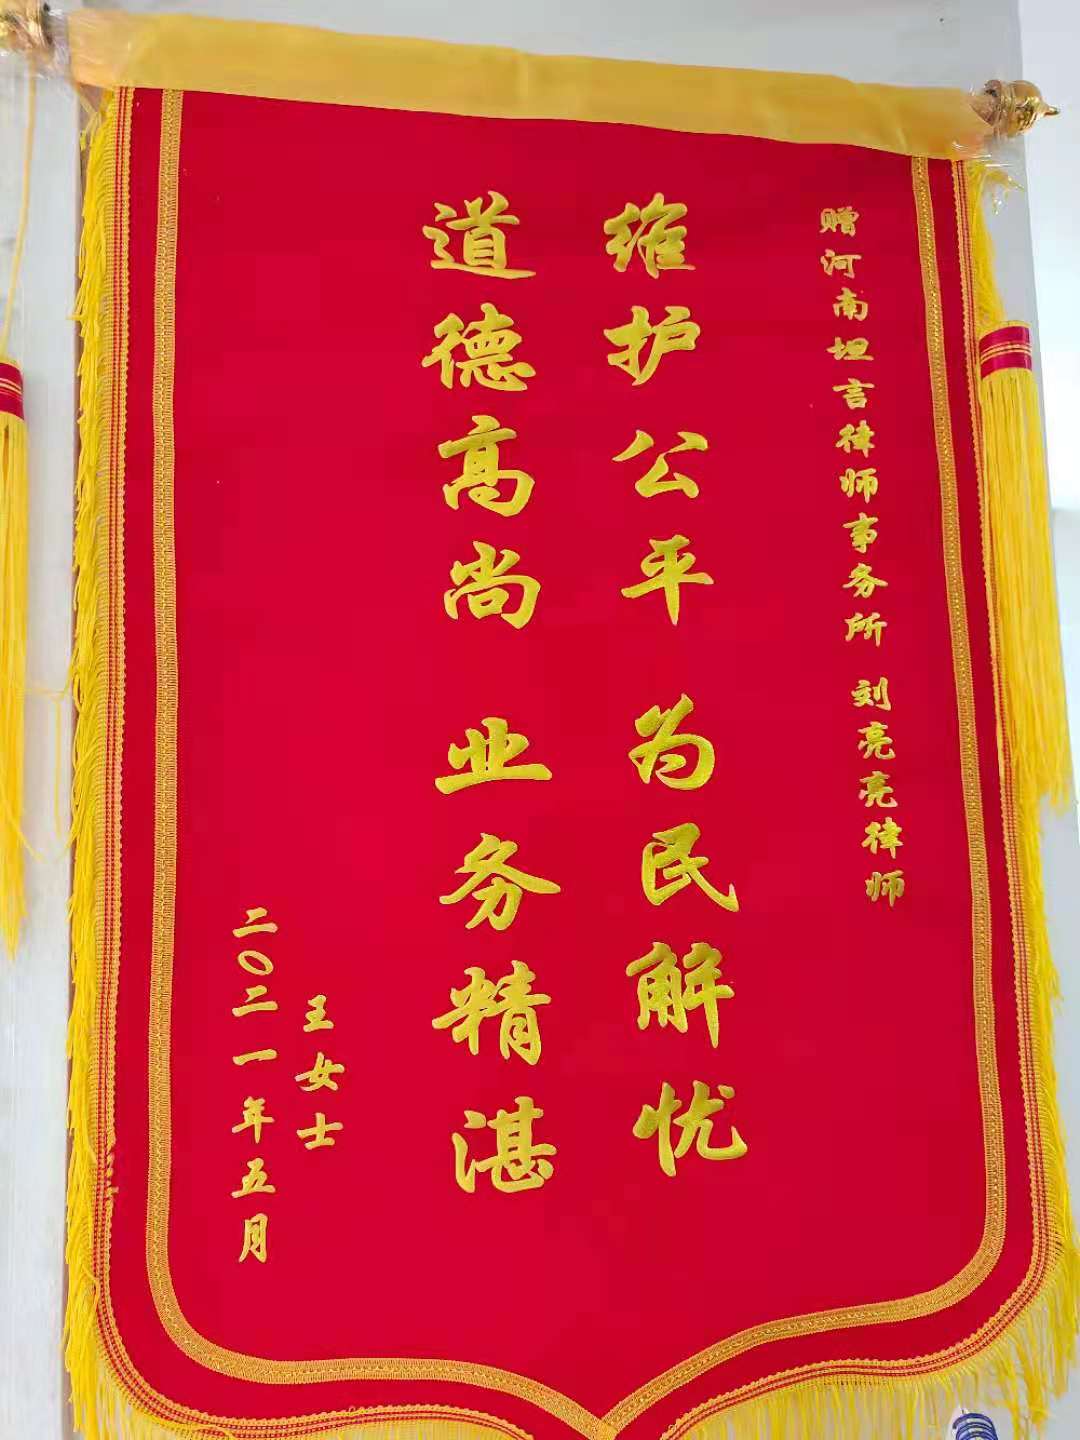 赠河南坦言律师事务所 刘亮亮律师
维护公平 为民解忧
道德高尚 业务精湛
王女士
二〇二一年五月